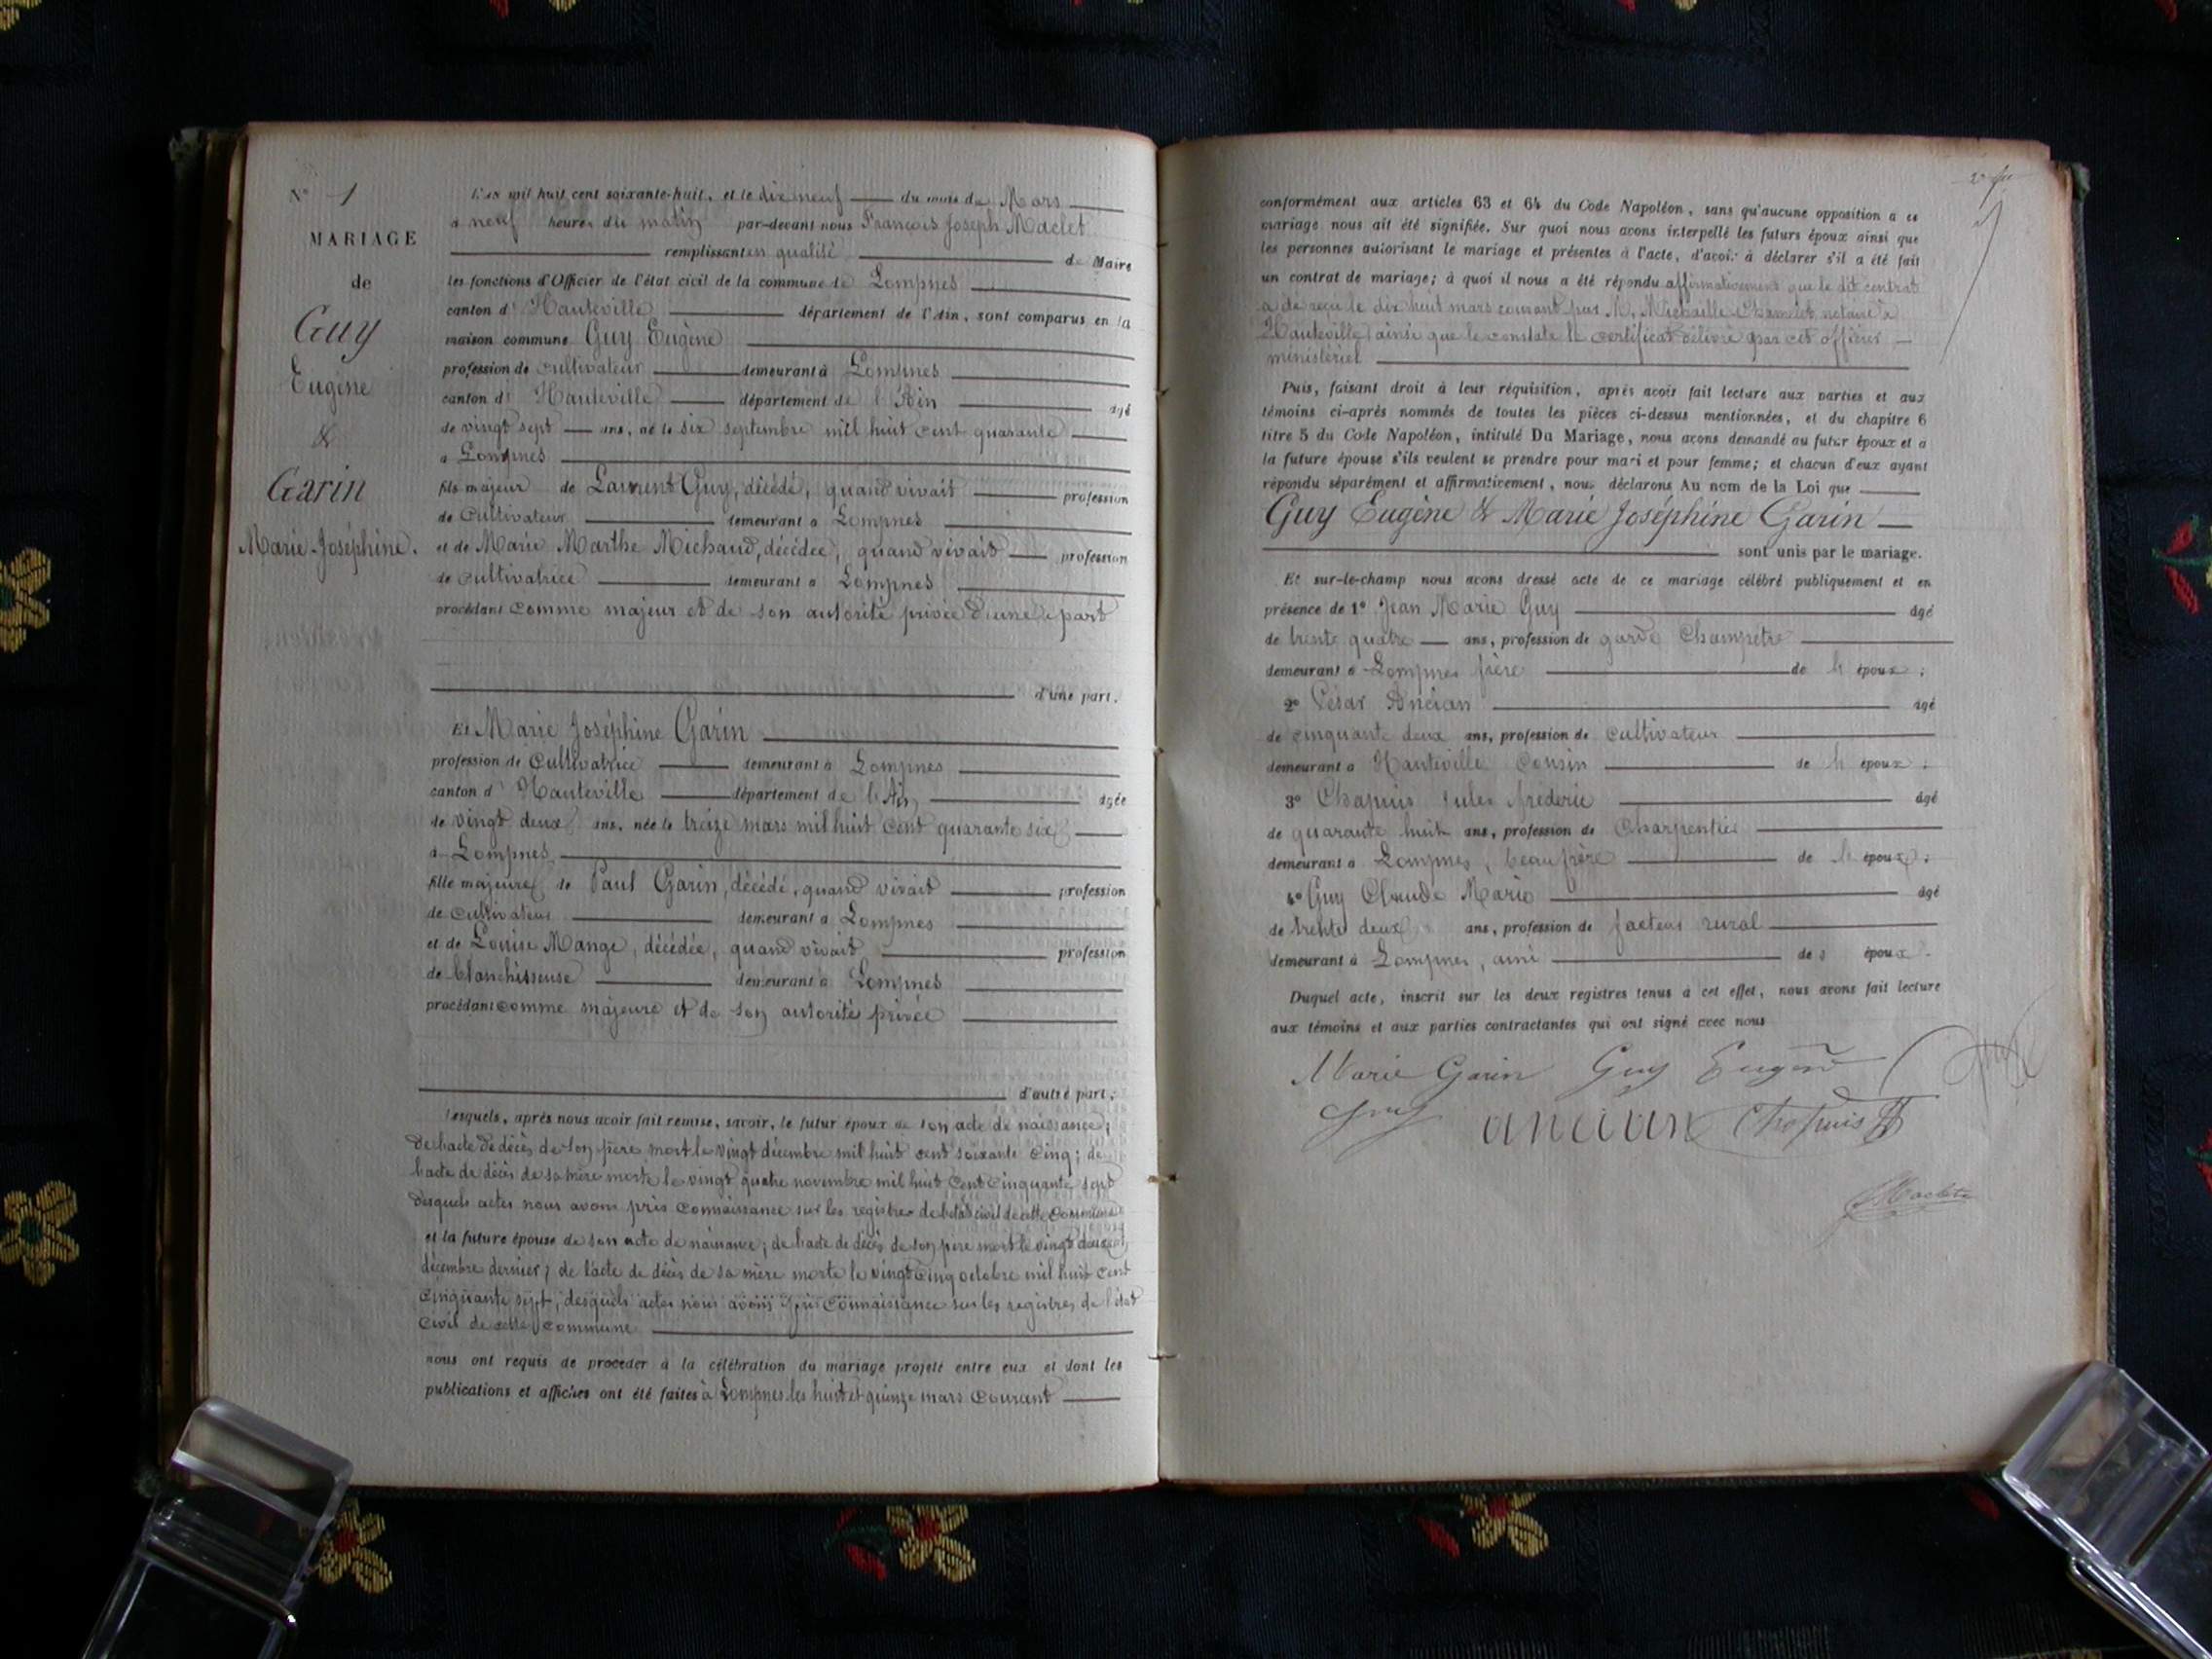 N° 1
MARIAGE
de
Guy
Eugène
&
Garin
Marie Joséphine.
L'an mil huit cent soixante-huit, et le dix neuf du mois de Mars
à neuf heures du matin par-devant nous François Joseph Maclet
remplissant en qualité de Maire
les fonctions d'Officier de l'état civil de la commune de Lompnes
canton d' Hauteville département de l'Ain, sont comparus en la
maison commune Guy Eugène
profession de cultivateur demeurant à Lompnes
canton d' Hauteville département de l'Ain âgé
de vingt sept ans, né le six septembre mil huit cent quarante
à Lompnes
fils majeur de Laurent Guy, décédé, quand vivait profession
de Cultivateur demeurant à Lompnes
et de Marie Marthe Michaud, décédée, quand vivait profession
de cultivatrice demeurant à Lompnes
procédant comme majeur et de son autorité privée d'une part
d'une part.
Et Marie Joséphine Garin
profession de Cultivatrice demeurant à Lompnes
canton d' Hauteville département de l'Ain âgée
de vingt deux ans, née le treize mars mil huit cent quarante six
à Lompnes
fille majeure de Paul Garin, décédé, quand vivait profession
de Cultivateur demeurant à Lompnes
et de Louise Mange, décédée, quand vivait profession
de blanchisseuse demeurant à Lompnes
procédant comme majeure et de son autorité privée
d'autre part;
Lesquels, après nous avoir fait remise, savoir, le futur époux de son acte de naissance;
de l'acte de décès de son père mort le vingt décembre mil huit cent soixante cinq; de
l'acte de décès de sa mère morte le vingt quatre novembre mil huit cent cinquante sept
desquels actes nous avons pris connaissance sur les registres de l'état civil de cette commune
et la future épouse de son acte de naissance; de l'acte de décès de son père mort le vingt deux
décembre dernier; de l'acte de décès de sa mère morte le vingt cinq octobre mil huit cent
cinquante sept, desquels actes nous avons pris connaissance sur les registres de l'état
civil de cette commune
nous ont requis de procéder à la célébration du mariage projeté entre eux et dont les
publications et affiches ont été faites à Lompnes les huit et quinze mars courant
conformément aux articles 63 et 64 du Code Napoléon, sans qu'aucune opposition à ce
mariage nous ait été signifiée. Sur quoi nous avons interpellé les futurs époux ainsi que
les personnes autorisant le mariage et présentes à l'acte, d'avoir à déclarer s'il a été fait
un contrat de mariage; à quoi il nous a été répondu affirmativement que le dit contrat
a été reçu le dix huit mars courant par M. Michaille notaire à
Hauteville ainsi que le constate le certificat délivré par cet officier
ministériel
Puis, faisant droit à leur réquisition, après avoir fait lecture aux parties et aux
témoins ci-après nommés de toutes les pièces ci-dessus mentionnées, et du chapitre 6
titre 5 du Code Napoléon, intitulé Du Mariage, nous avons demandé au futur époux et à
la future épouse s'ils veulent se prendre pour mari et pour femme; et chacun d'eux ayant
répondu séparément et affirmativement, nous déclarons Au nom de la Loi que
Guy Eugène & Marie Joséphine Garin
sont unis par le mariage.
Et sur-le-champ nous avons dressé acte de ce mariage célébré publiquement et en
présence de 1° Jean Marie Guy âgé
de trente quatre ans, profession de garde Champêtre
demeurant à Lompnes frère de l' époux;
2° César Ancian âgé
de cinquante deux ans, profession de cultivateur
demeurant à Hauteville Cousin de l' époux;
3° Chapuis Jules fréderic âgé
de quarante huit ans, profession de Charpentier
demeurant à Lompnes, beau frère de l' époux;
4° Guy Claude Marie âgé
de trente deux ans, profession de facteur rural
demeurant à Lompnes, ami des époux.
Duquel acte, inscrit sur les deux registres tenus à cet effet, nous avons fait lecture
aux témoins et aux parties contractantes qui ont signé avec nous
Marie Garin Guy Eugène
Guy ancian Chapuis
Maclet